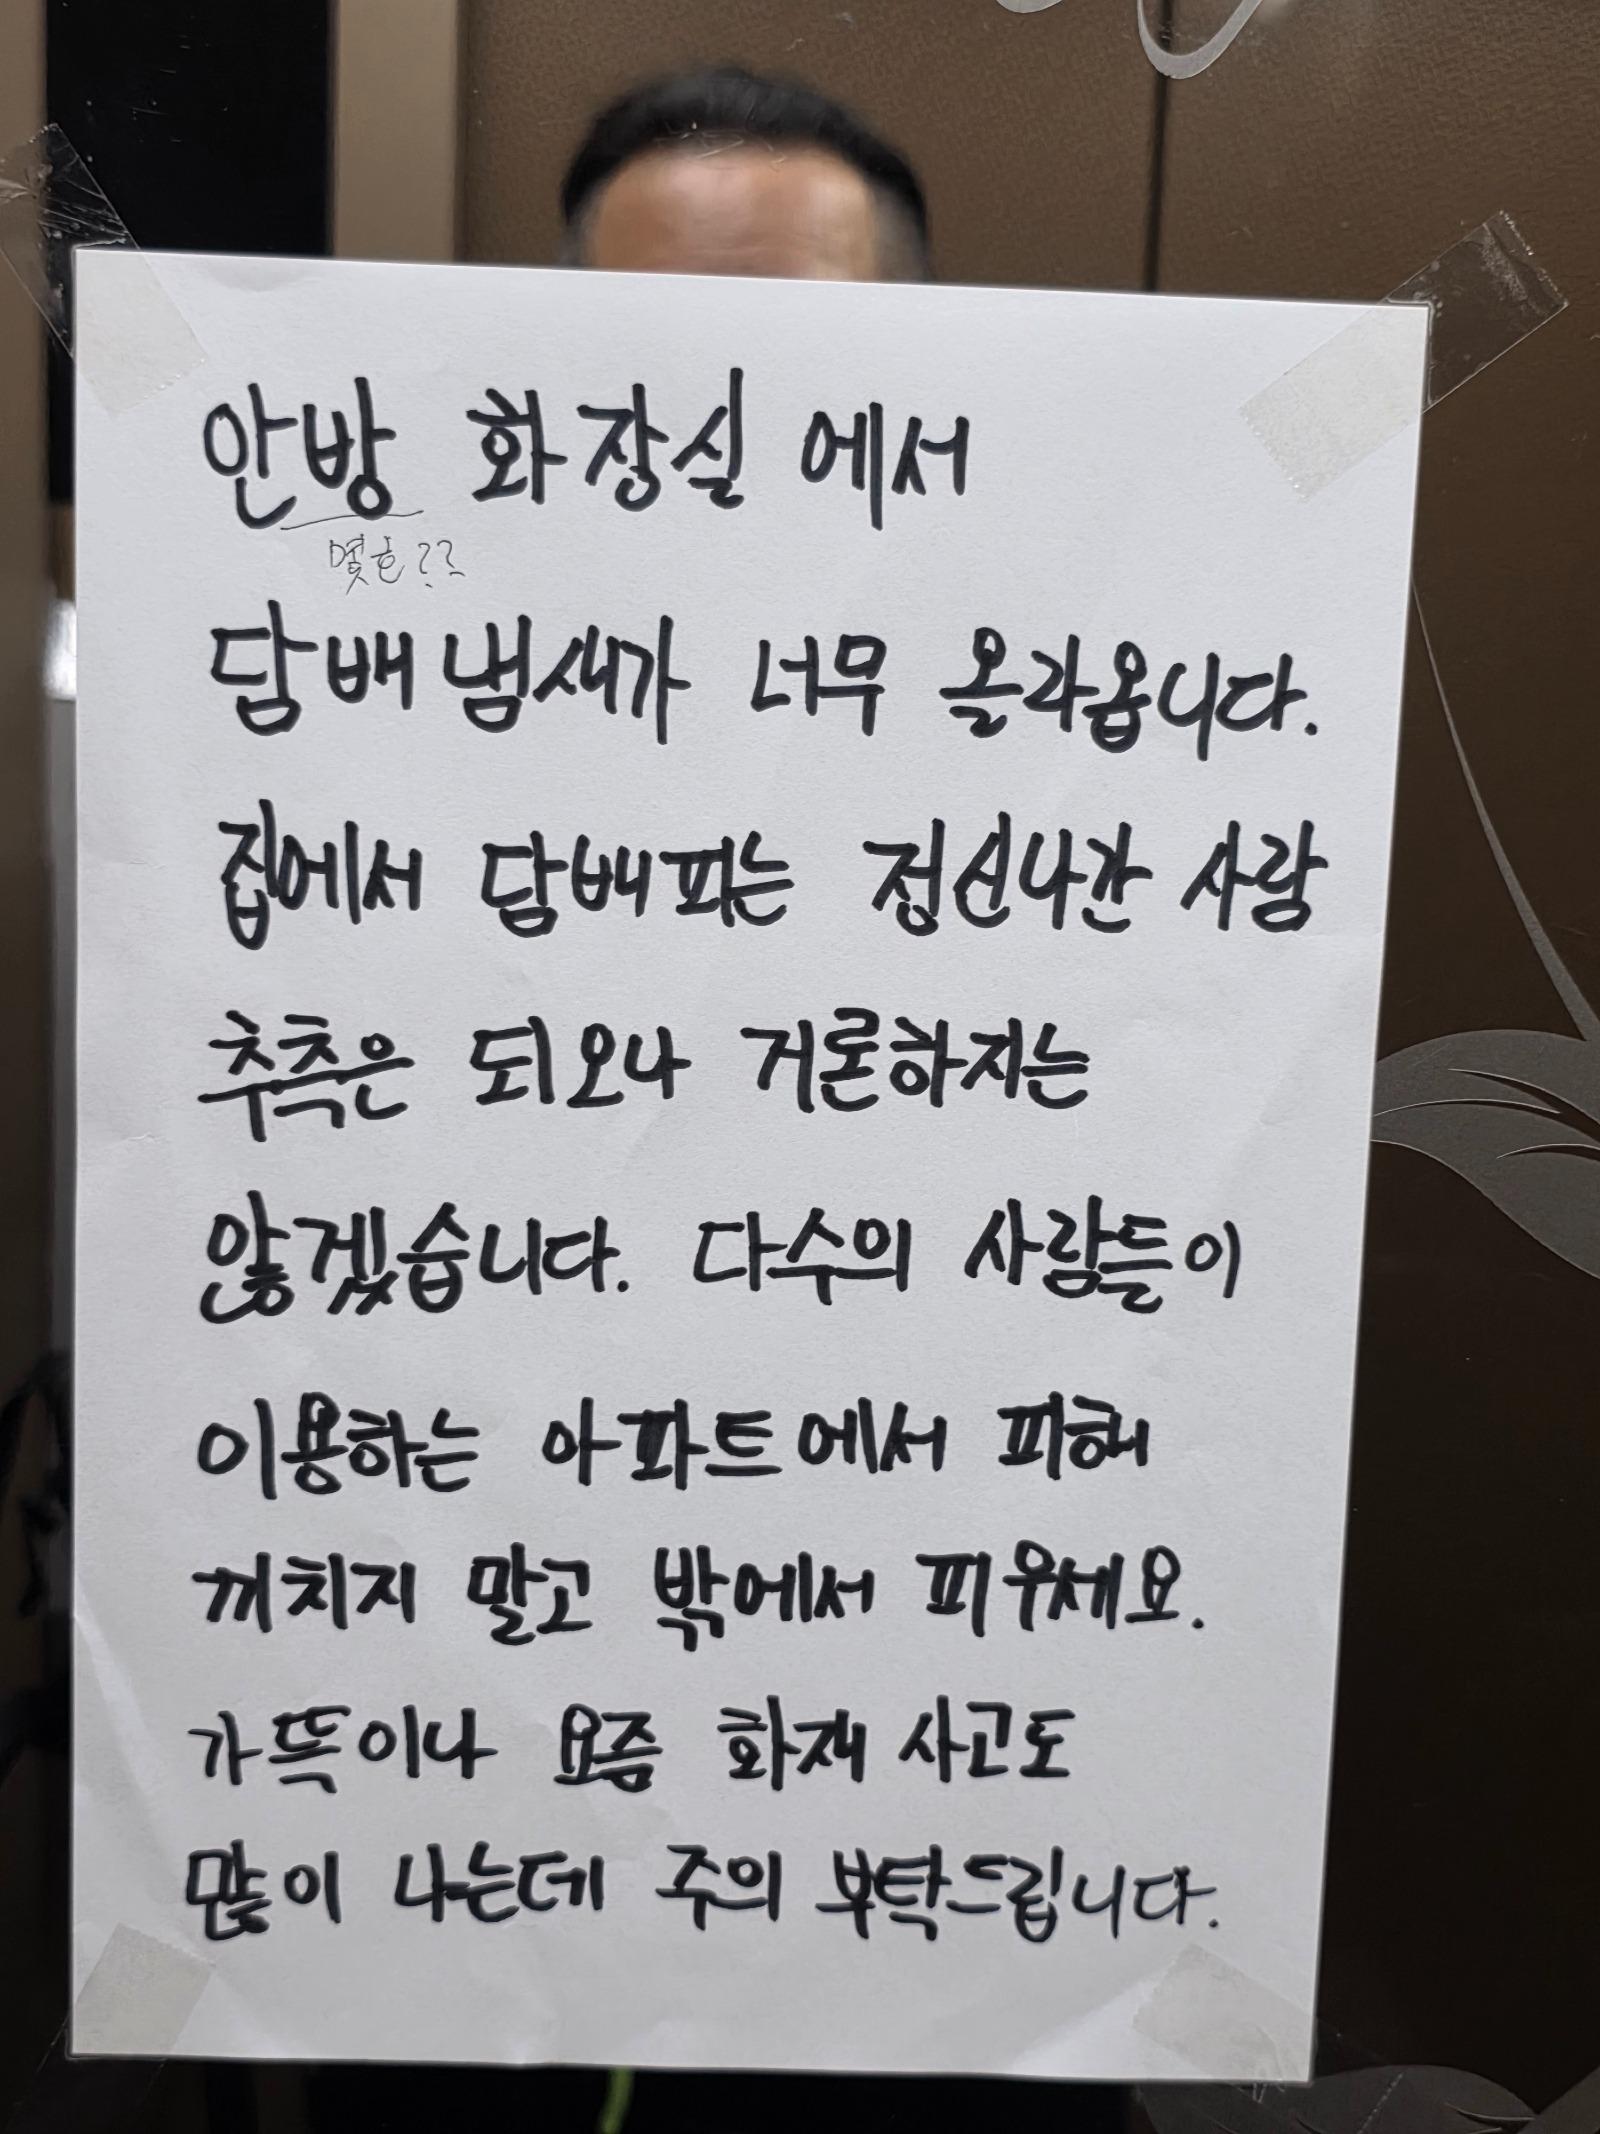 안방 화장실에서
몇호??
담배냄새가 너무 올라옵니다.
집에서 담배피는 정신나간 사람
추측은 되오나 거론하지는
않겠습니다. 다수의 사람들이
이용하는 아파트에서 피해
끼치지 말고 밖에서 피우세요.
가뜩이나 요즘 화재 사고도
많이 나는데 주의 부탁드립니다.